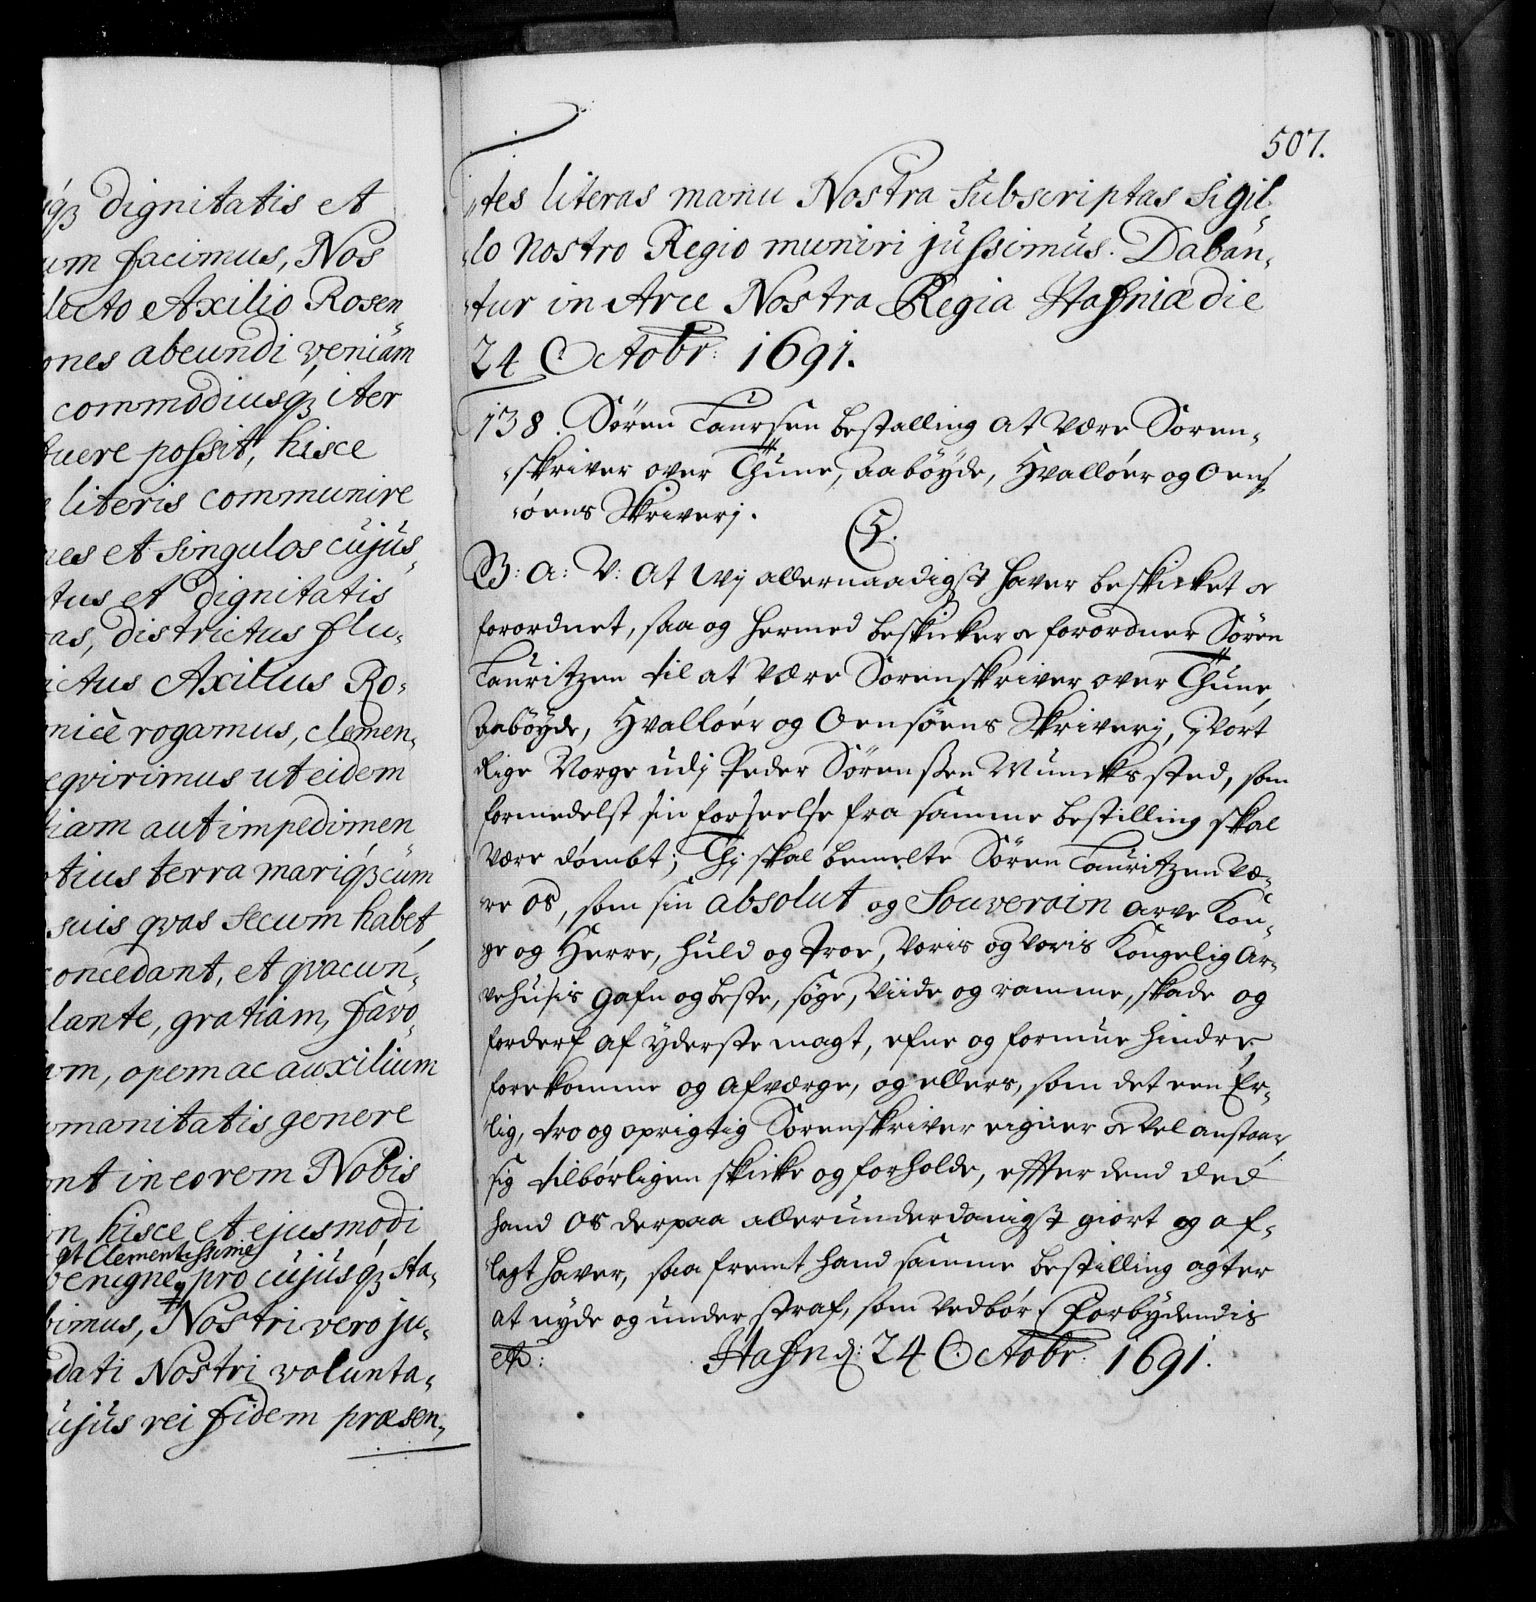 qꝫ dignitatis et
um facimus, Nos
lecto Axilio Rosen„
ones abeundi veniam
commodiusqꝫ iter
tuere possit, hisce
literis communire
nes et singulos cujus„
tus et dignitatis
as, districtus flu„
ictus Axilius Ro„
nicè rogamus, clemen„
eqvirimus ut eidem
iam aut impedimen„
otius terra mariqꝫ cum
suis qvas secum habet,
concedant, et qvacun„
lante, gratiam, favo„
um, opem ac auxilium
manitatis genere
ont in eo rem Nobis
on hisce et ejusmodi
et Clementissime
benigne, pro cujusqꝫ sta„
bimus, Nostri vero ju„
dati Nostri volunta„
ujus rei fidem præsen„
507.
„tes literas manu Nostra subscriptas sigil„
„lo nostro Regio muniri jussimus. Daban„
„tur in Arce Nostra Regia Hafniæ die
24 Octobr: 1691.
138. Sören Laursen bestalling at være Soren„
„skriver over Thune, Aaböyde, Hvallöer og Oens„
„öens Skriverj.
5.
G: A: V: At Wj allernaadigst hafver beskicket og
forordnet, saa og hermed beskicker og forordner Sören
Lauritzen til at være Sorenskriver over Thune,
Aaböyde, Hvallöer og Oensöens Skriverj, i Vort
Rige Norge udj Peder Sörenssen Muncks sted, som
formedelst sin forseelse fra samme bestilling skal
være dömbt; Thj skal bemelte Sören Lauritzen væ„
„re os, som sin absolut og Souverain Arve Kon„
ge og Herre, huld og troe, Voris og Voris Kongelig Ar„
vehusis gafn og beste, söge, vide og ramme, skade og
forderf af yderste magt, efne og formue hindre,
forekomme og afværge, og ellers, som det een Er„
„lig, tro og oprigtig Sorenskriver eigner og vel anstaar,
sig tilbörligen skicke og forholde, effter dend Eed
hand os derpaa allerunderdanigst giort og af„
„lagt hafver, saafremt hand samme bestilling agter
at nyde og under straf, som vedbör. Forbydendis
etc: Hafn d: 24 Octobr: 1691.